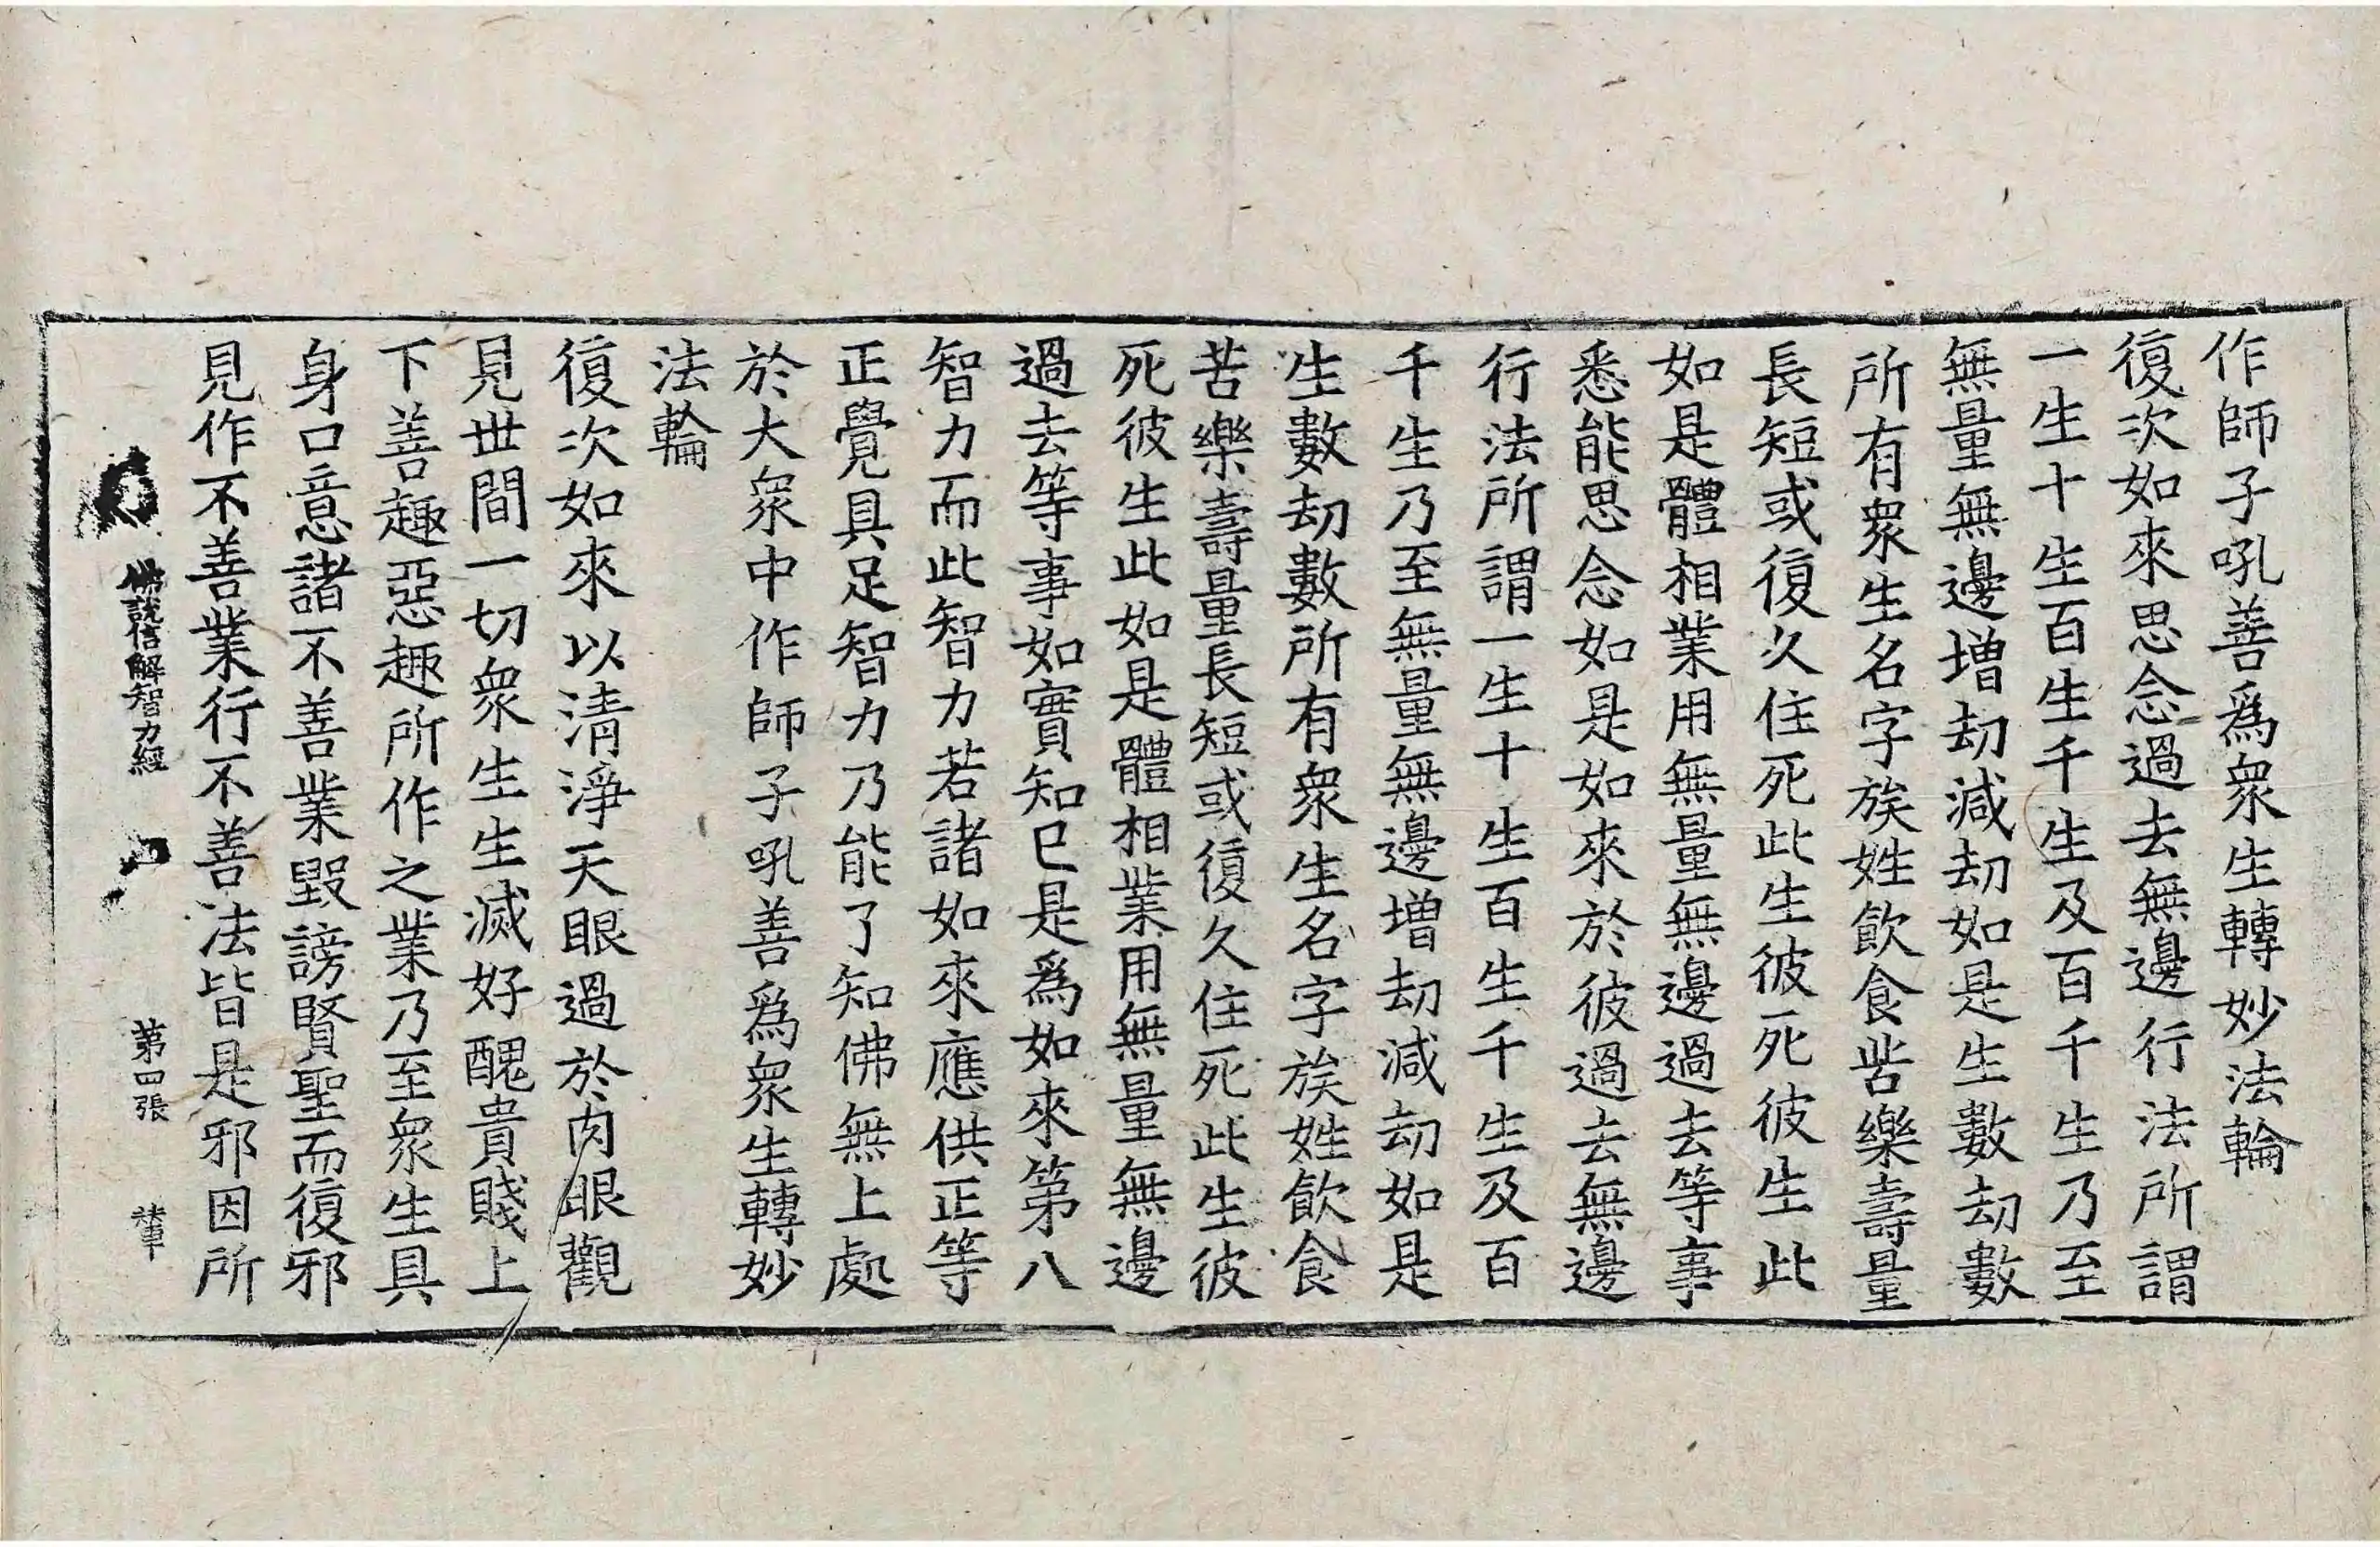 作師子吼善爲衆生轉妙法輪
復次如來思念過去無邊行法所謂
一生十生百生千生及百千生乃至
無量無邊增劫減劫如是生數劫數
所有衆生名字族姓飲食苦樂壽量
長短或復久住死此生彼死彼生此
如是體相業用無量無邊過去等事
悉能思念如是如來於彼過去無邊
行法所謂一生十生百生千生及百
千生乃至無量無邊增劫減劫如是
生數劫數所有衆生名字族姓飲食
苦樂壽量長短或復久住死此生彼
死彼生此如是體相業用無量無邊
過去等事如實知已是爲如來第八
智力而此智力若諸如來應供正等
正覺具足智力乃能了知佛無上處
於大衆中作師子吼善爲衆生轉妙
法輪
復次如來以清淨天眼過於肉眼觀
見世間一切衆生生滅好醜貴賤上
下善趣惡趣所作之業乃至衆生具
身口意諸不善業毀謗賢聖而復邪
見作不善業行不善法皆是邪因所
佛說信解智力經 第四張 輦